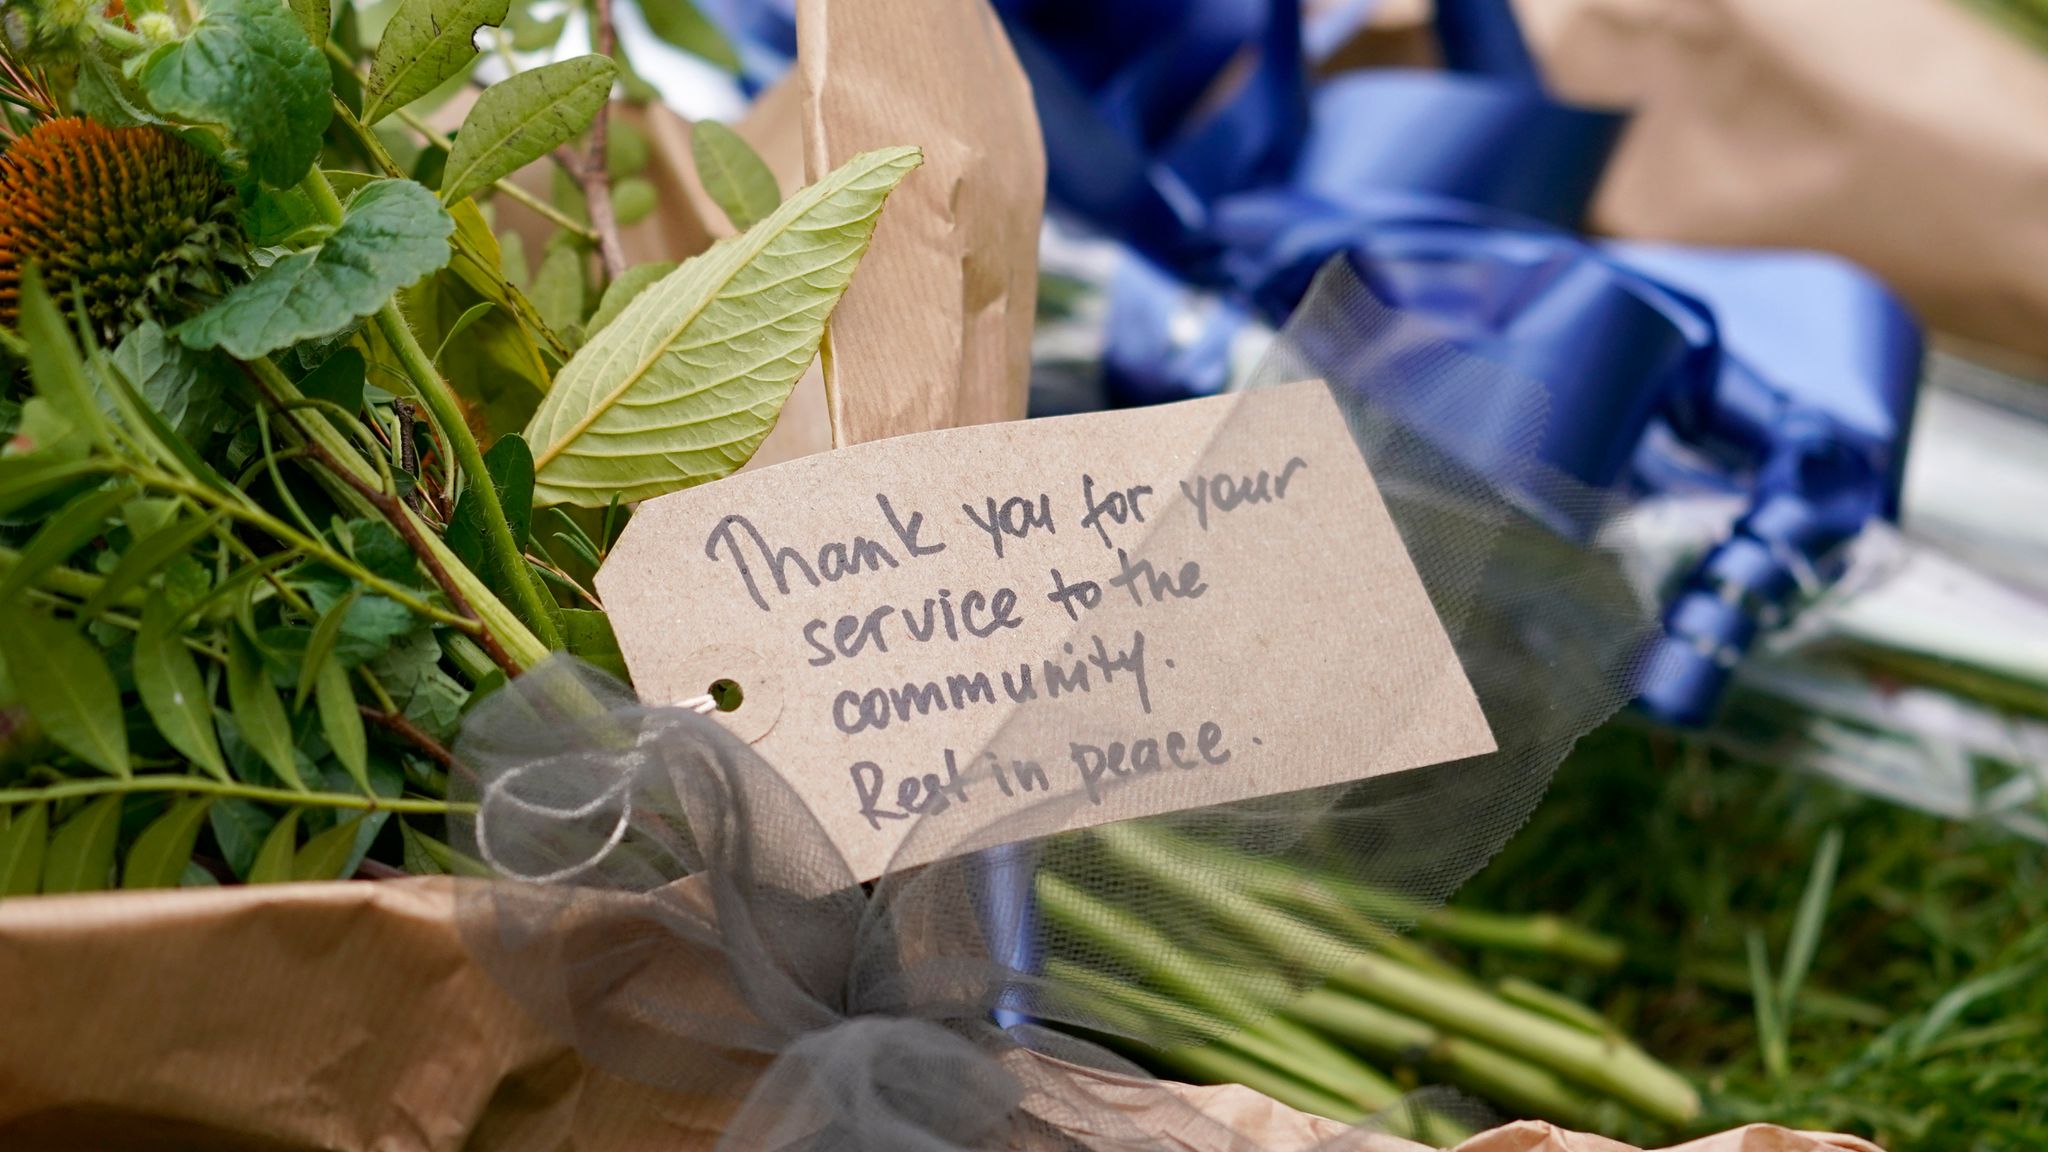 Thank you for your
service to the
community.
Rest in peace.